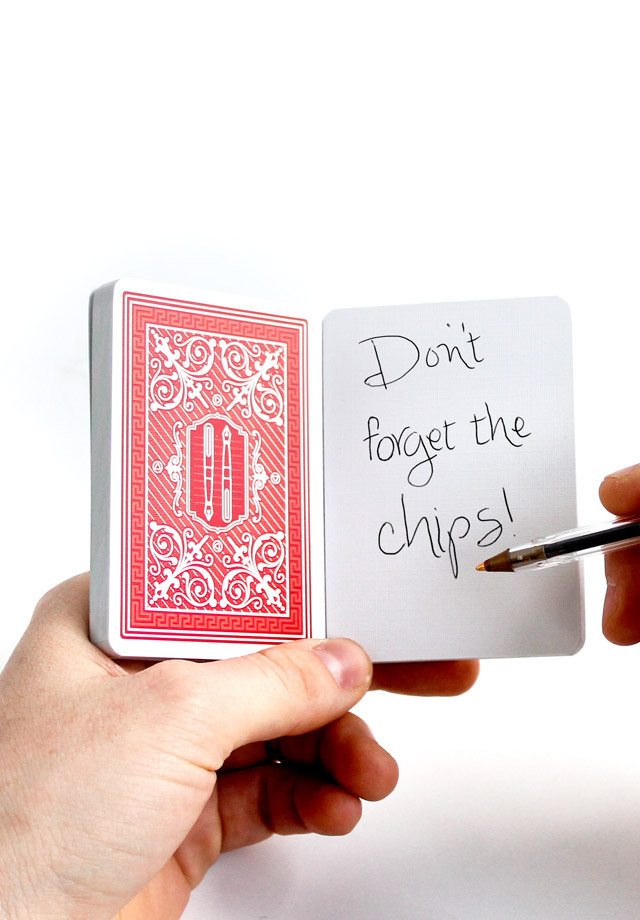 Don't
forget the
chips!